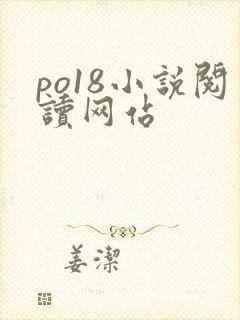 po18小説閱
讀网佔
姜潔